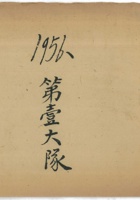 1956、
第壹大隊